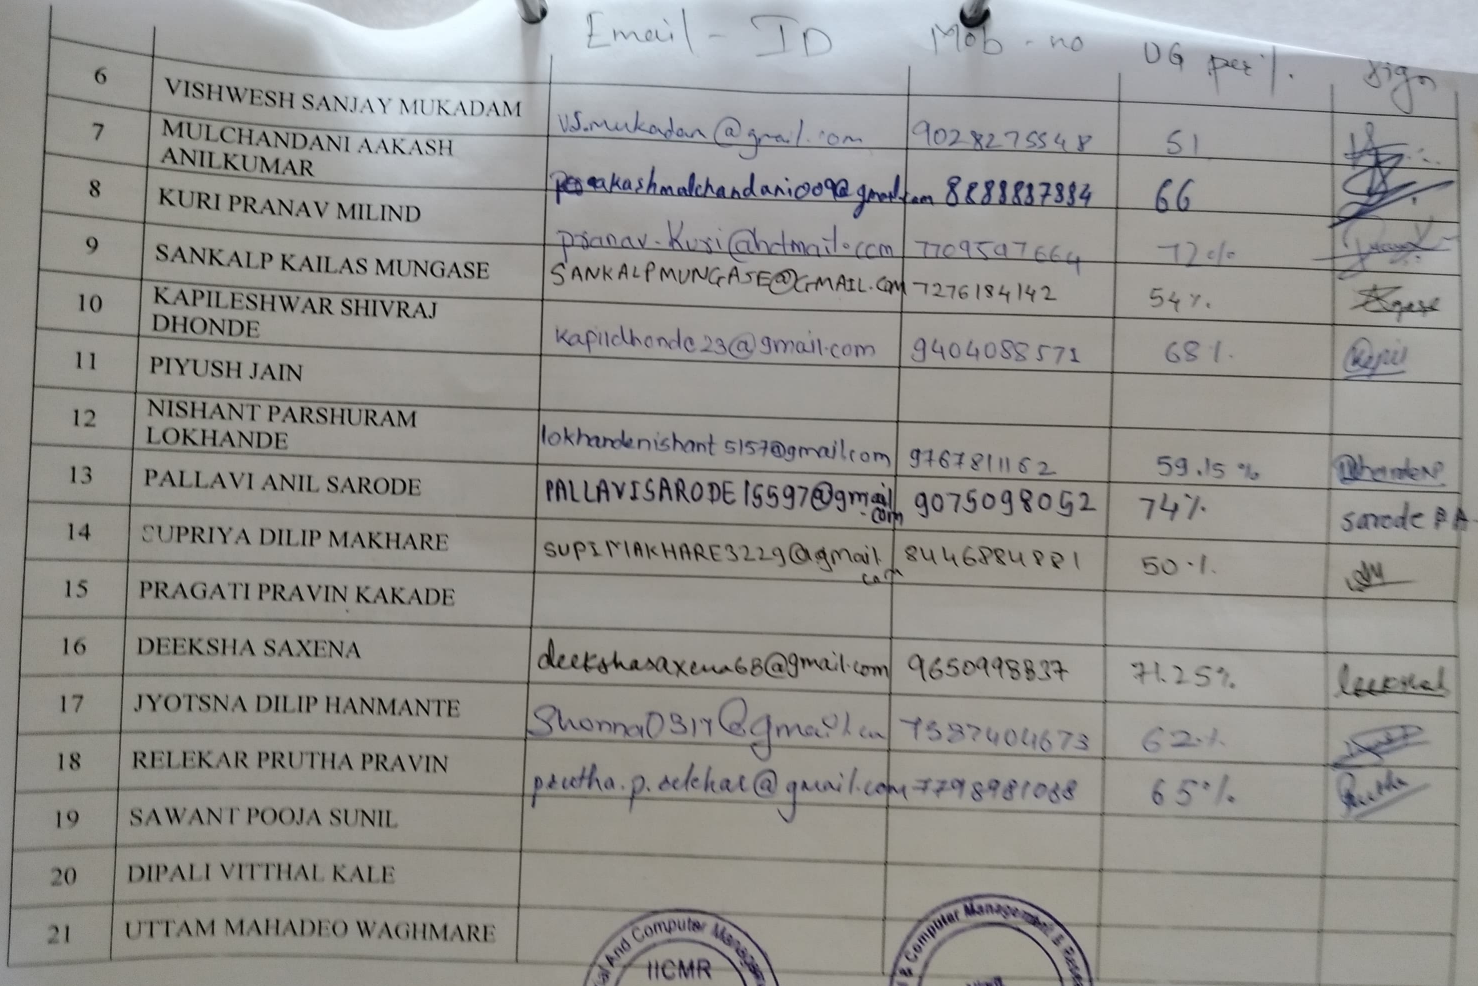 Email - ID Mob - no UG per %. sign
6 VISHWESH SANJAY MUKADAM vs.mukadam@gmail.com 9028275548 51
7 MULCHANDANI AAKASH
ANILKUMAR aakashmalchandani009@gmail.com 8888887884 66
8 KURI PRANAV MILIND pranav.kuri@hotmail.com 7709597664 72%
9 SANKALP KAILAS MUNGASE SANKALPMUNGASE@GMAIL.COM 7276184142 54%.
10 KAPILESHWAR SHIVRAJ
DHONDE kapildhonde23@gmail.com 9404088571 68%. Kapil
11 PIYUSH JAIN
12 NISHANT PARSHURAM
LOKHANDE lokhandenishant5157@gmail.com 9767811162 59.15%
13 PALLAVI ANIL SARODE PALLAVISARODE15597@gmail
.com 9075098052 74% sarode P A
14 SUPRIYA DILIP MAKHARE SUPIMAKHARE3229@gmail.
com 8446884881 50%.
15 PRAGATI PRAVIN KAKADE
16 DEEKSHA SAXENA deekshasaxena68@gmail.com 9650998837 71.25%
17 JYOTSNA DILIP HANMANTE 7387404673 62%.
18 RELEKAR PRUTHA PRAVIN prutha.p.relekar@gmail.com 7798981088 65% Prutha
19 SAWANT POOJA SUNIL
20 DIPALI VITTHAL KALE
21 UTTAM MAHADEO WAGHMARE
And Computer Manage
IICMR
& Computer Management & Resea